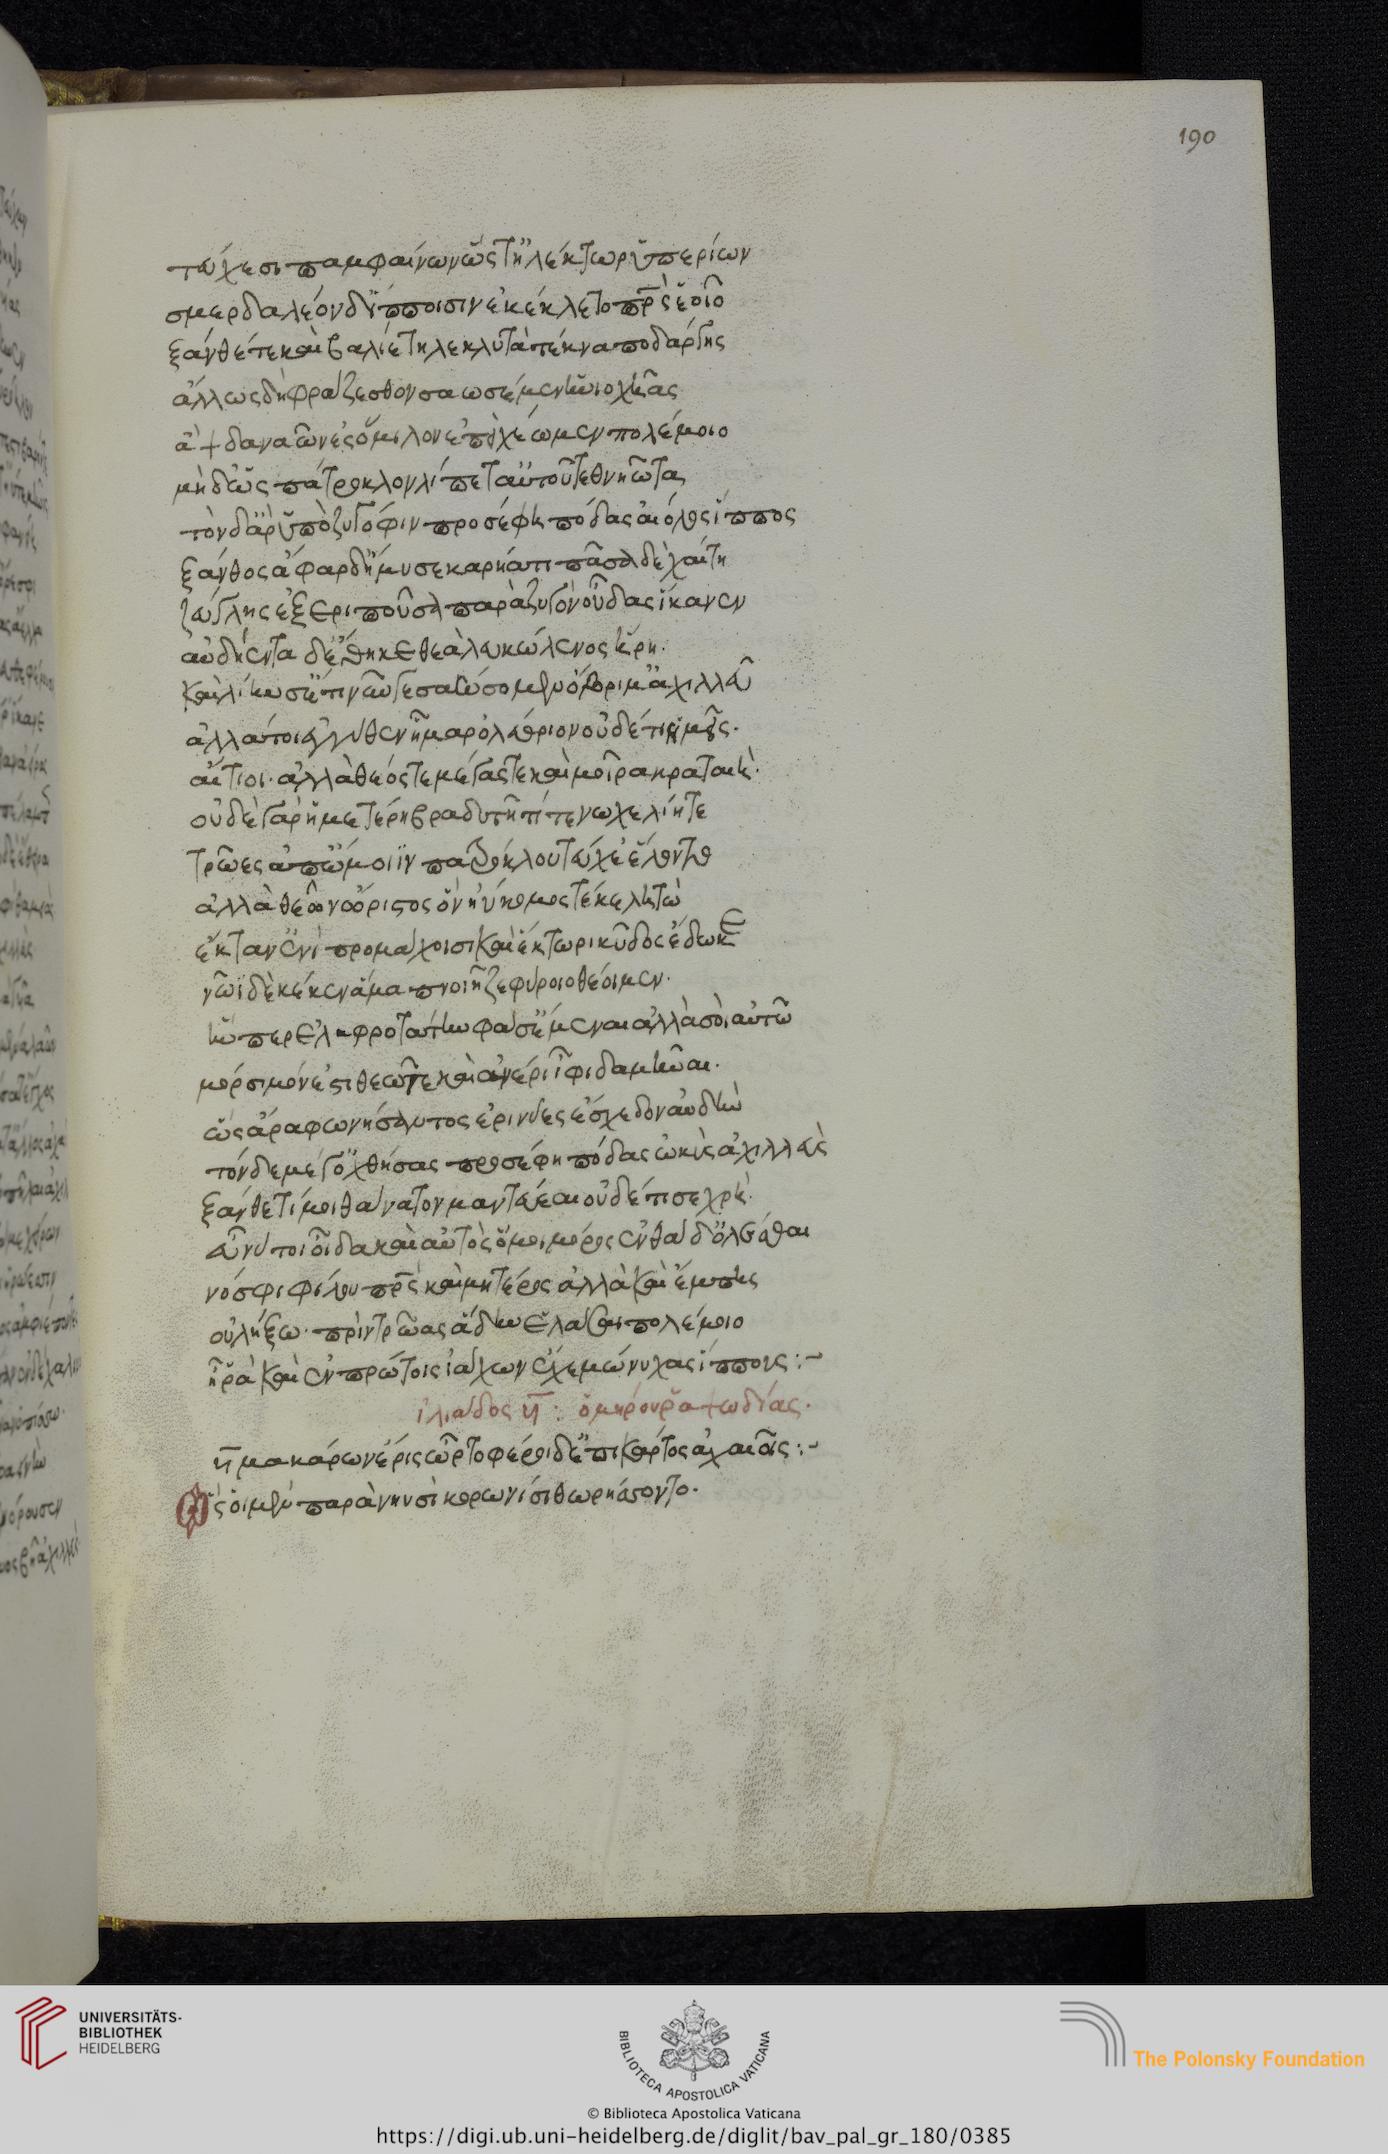 190
τεύχεσι παμφαίνων ὥς τ' ἠλέκτωρ ὑπερίων
σμερδαλέον δ' ἵπποισιν ἐκέκλετο πρς ἑοῖο
ξάνθέ τε καὶ βαλίε τηλεκλυτὰ τέκνα ποδάργης
ἄλλως δὴ φράζεσθον σαωσέμεν ἡνιοχῆας
ἂψ δαναῶν ἐς ὅμιλον ἐπὴ χέωμεν πολέμοιο
μηδ' ὡς πάτροκλον λίπετ' αὐτοῦ τεθνηῶτα
τὸν δ' ἄρ' ὑπὸ ζυγόφιν προσέφη πόδας αἰόλος ἵππος
ξάνθος ἄφαρ δ' ἤμυσε καρήατι πᾶσα δὲ χαίτη
ζεύγλης ἐξεριποῦσα παρὰ ζυγὸν οὖδας ἵκανεν
αὐδήεντα δ' ἔθηκε θεὰ λευκώλενος ἥρη.
καὶ λίην σ' ἔτι νῦν γε σαώσομεν ὄβριμ' ἀχιλλεῦ
ἀλλά τοι ἐγγύθεν ἦμαρ ὀλέθριον οὐδέ τι ἡμεῖς.
αἴτιοι. ἀλλὰ θεός τε μέγας τε καὶ μοῖρα κραταιή.
οὐδὲ γὰρ ἡμετέρη βραδυτῆτί τε νωχελίη τε
τρῶες ἀπ' ὤμοιϊν πατρόκλου τεύχε' ἕλοντο
ἀλλὰ θεῶν ὤριστος ὃν ἠΰκομος τέκε λητώ
ἔκταν' ἐνὶ προμάχοισι καὶ ἕκτωρι κῦδος ἔδωκε
νῶϊ δὲ κέ κεν ἅμα πνοιῆ ζεφύροιο θέοιμεν.
ἥν περ ἐλαφροτάτην φάσ' ἔμεναι ἀλλὰ σοὶ αὐτῶ
μόρσιμόν ἐστι θεῶ τε καὶ ἀνέρι ἶφι δαμῆναι.
ὣς ἄρα φωνήσαντος ἐρινύες ἔσχεθον αὐδήν
τὸν δὲ μέγ' ὀχθήσας προσέφη πόδας ὠκὺς ἀχιλλεὺς
ξάνθε τί μοι θάνατον μαντεύεαι οὐδέ τί σε χρή.
εὖ νύ τοι οἶδα καὶ αὐτὸς ὅ μοι μόρος ἐνθάδ' ὀλέσθαι
νόσφι φίλου πρς καὶ μητέρος ἀλλὰ καὶ ἔμπης
οὐ λήξω. πρὶν τρῶας ἅδην ἐλάσαι πολέμοιο
ἦ ῥα καὶ ἐν πρώτοις ἰάχων ἔχε μώνυχας ἵππους :~
ἰλιάδος υ : ὁμήρου ῥαψωδίας.
υ μακάρων ἔρις ὦρτο φέρει δ' ἐπὶ κάρτος ἀχαιοῖς :~
Ὣς οἱ μὲν παρὰ νηυσὶ κορωνίσι θωρήσσοντο.
UNIVERSITÄTS-
BIBLIOTHEK
HEIDELBERG
BIBLIOTECA APOSTOLICA VATICANA
The Polonsky Foundation
© Biblioteca Apostolica Vaticana
https://digi.ub.uni-heidelberg.de/diglit/bav_pal_gr_180/0385